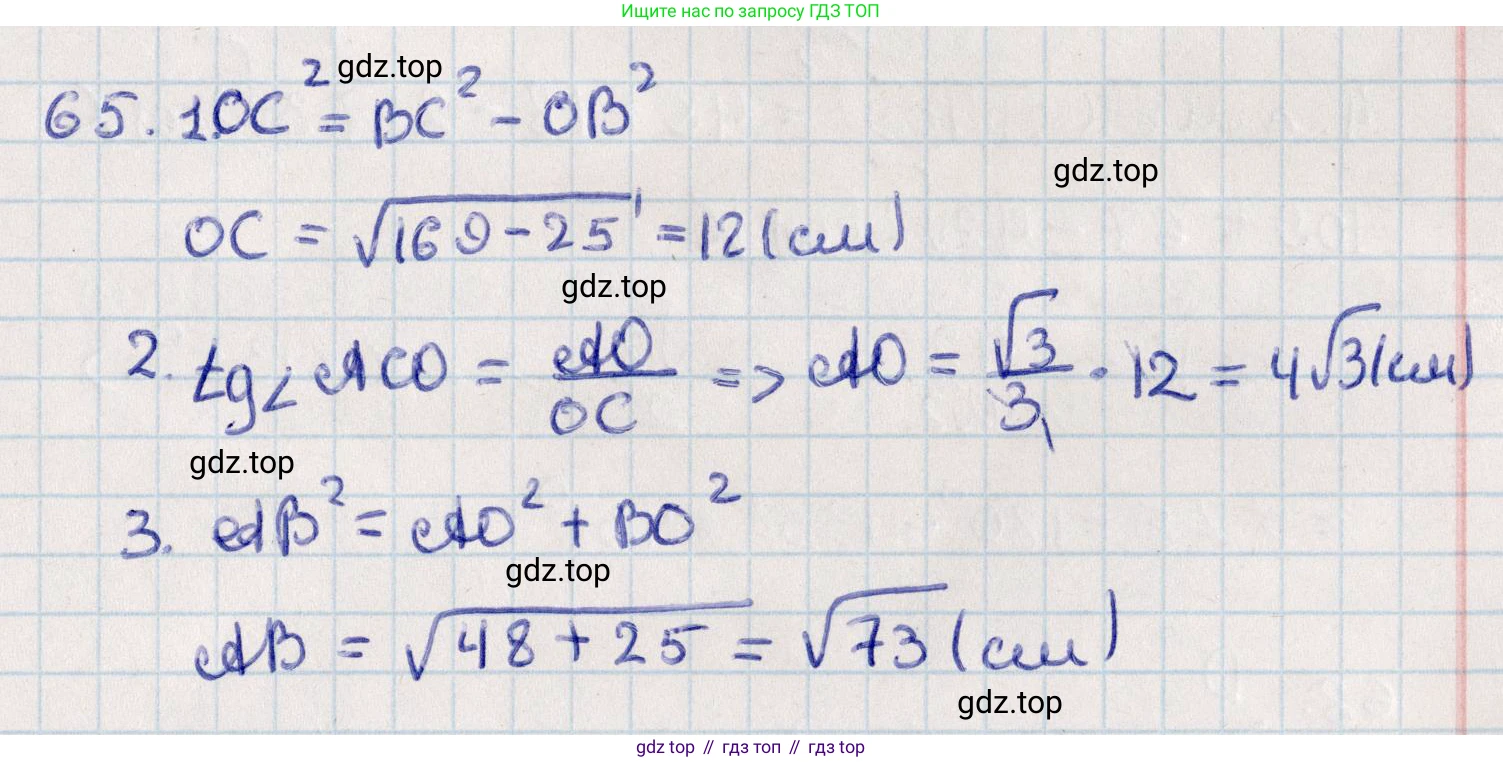 Ищите нас по запросу ГДЗ ТОП
gdz.top
65. 1.OC² = BC² - OB²
gdz.top
OC = √169-25 = 12 (см)
gdz.top
2. tg∠ACO = AO/OC => AO = √3/3 · 12 = 4√3 (см)
gdz.top
3. AB² = AO² + BO²
gdz.top
AB = √48+25 = √73 (см)
gdz.top
gdz top // гдз топ // гдз top